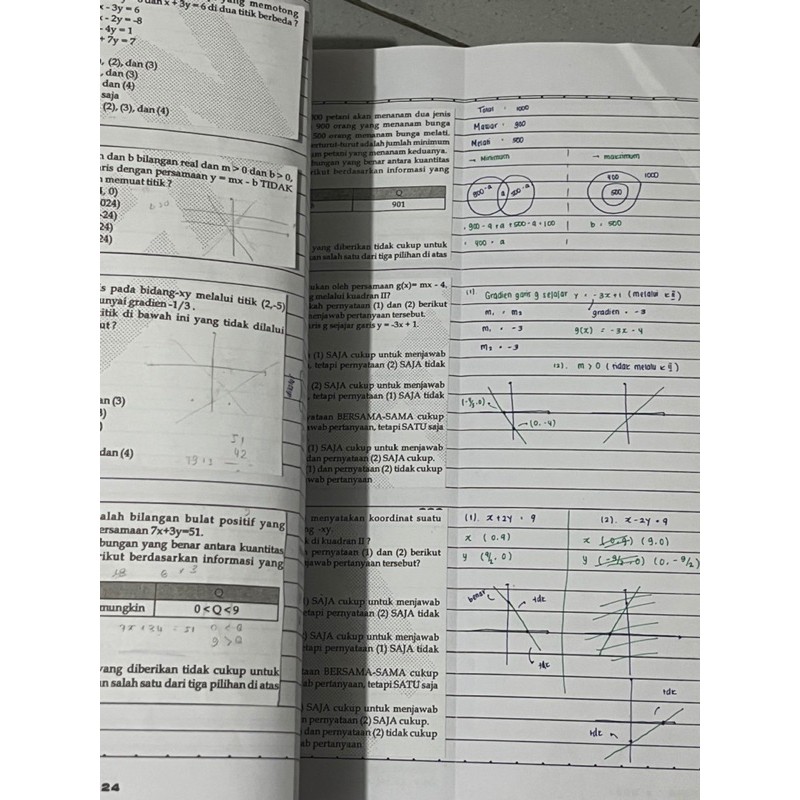 memotong
x - 3y = 6 dan x + 3y = 6 di dua titik berbeda ?
x - 2y = -8
- 4y = 1
+ 7y = 7
, (2), dan (3)
, dan (3)
dan (4)
saja
(2), (3), dan (4)
dan b bilangan real dan m > 0 dan b > 0,
ris dengan persamaan y = mx - b TIDAK
memuat titik ?
, 0)
024)
-24)
24)
24)
s pada bidang-xy melalui titik (2,-5)
unyai gradien -1/3 .
itik di bawah ini yang tidak dilalui
ut ?
an (3)
3)
)
dan (4)
51
42
alah bilangan bulat positif yang
ersamaan 7x+3y=51.
bungan yang benar antara kuantitas
rikut berdasarkan informasi yang
18 6 , 3
Q
mungkin 0 < Q < 9
7x + 24 = 51 0 < Q
9 > Q
yang diberikan tidak cukup untuk
n salah satu dari tiga pilihan di atas
24
000 petani akan menanam dua jenis
900 orang yang menanam bunga
500 orang menanam bunga melati.
erturut-turut adalah jumlah minimum
um petani yang menanam keduanya.
bungan yang benar antara kuantitas
rikut berdasarkan informasi yang
Q
901
yang diberikan tidak cukup untuk
an salah satu dari tiga pilihan di atas
Total : 1000
Mawar : 900
Melati : 500
→ Minimum | → maximum
900-a a 500-a
900 1000
500
. 900 - a + a + 500 - a = 1000
b = 500
. 400 = a
ukan oleh persamaan g(x)= mx - 4,
g melalui kuadran II?
kah pernyataan (1) dan (2) berikut
menjawab pertanyaan tersebut.
ris g sejajar garis y = -3x + 1.
(1) SAJA cukup untuk menjawab
, tetapi pernyataan (2) SAJA tidak
(2) SAJA cukup untuk menjawab
, tetapi pernyataan (1) SAJA tidak
yataan BERSAMA-SAMA cukup
wab pertanyaan, tetapi SATU saja
(1) SAJA cukup untuk menjawab
dan pernyataan (2) SAJA cukup.
1) dan pernyataan (2) tidak cukup
wab pertanyaan
(1) Gradien garis g sejajar y = -3x + 1 (melalui K II)
m₁ = m₂ gradien = -3
m₁ = -3 g(x) = -3x - 4
m₂ = -3
(2). m > 0 (tidak melalui K II)
(-4/3, 0)
→ (0, -4)
menyatakan koordinat suatu
ng -xy.
k di kuadran II ?
pernyataan (1) dan (2) berikut
jawab pertanyaan tersebut?
) SAJA cukup untuk menjawab
tetapi pernyataan (2) SAJA tidak
) SAJA cukup untuk menjawab
etapi pernyataan (1) SAJA tidak
taan BERSAMA-SAMA cukup
ab pertanyaan, tetapi SATU saja
) SAJA cukup untuk menjawab
n pernyataan (2) SAJA cukup.
dan pernyataan (2) tidak cukup
ab pertanyaan
(1). x + 2y = 9 (2). x - 2y = 9
x (0.9) x (9.0)
y (9/2, 0) y (0, -9/2)
benar
tdk
tdk
tdk
tdk